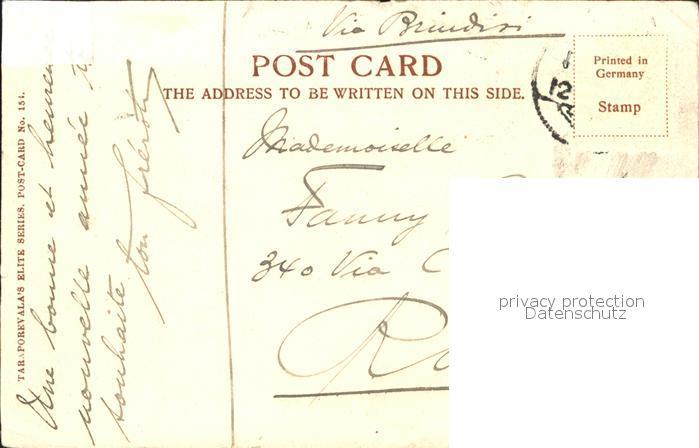 Via Brindisi
POST CARD
THE ADDRESS TO BE WRITTEN ON THIS SIDE.
Printed in
Germany
Stamp
12
TARAPOREVALA'S ELITE SERIES. POST-CARD No. 154.
Une bonne et heureu
nouvelle année te
souhaite
ton frérot
Mademoiselle
Fanny
340 Via C
R
privacy protection
Datenschutz